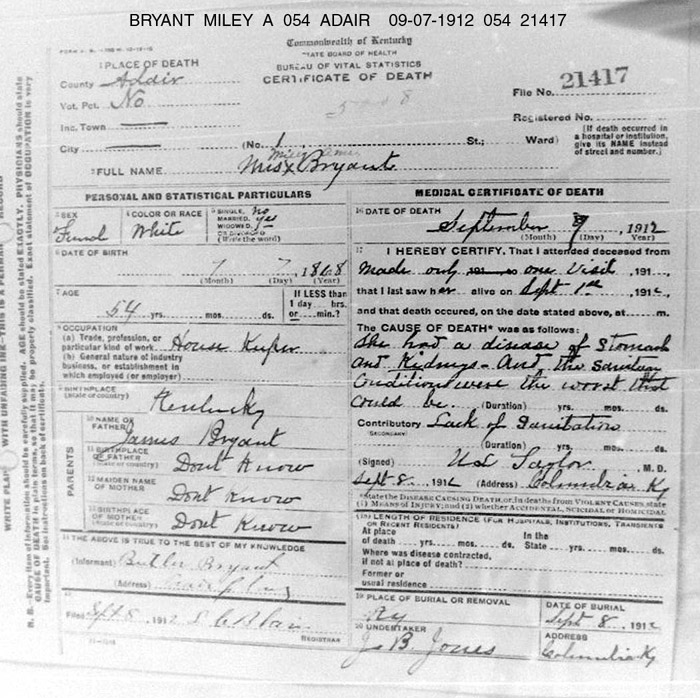 BRYANT MILEY A 054 ADAIR 09-07-1912 054 21417
Commonwealth of Kentucky
STATE BOARD OF HEALTH
BUREAU OF VITAL STATISTICS
CERTIFICATE OF DEATH
1 PLACE OF DEATH
County Adair
Vot. Pct. No
Inc. Town
City
(No. St.; Ward)
File No. 21417
Registered No.
(If death occurred in
a hospital or institution,
give its NAME instead
of street and number.)
2 FULL NAME Miss Bryant
PERSONAL AND STATISTICAL PARTICULARS
3 SEX
4 COLOR OR RACE
White
5 SINGLE, No
MARRIED, yes
WIDOWED,
OR DIVORCED
(Write the word)
6 DATE OF BIRTH
7 7, 1868
(Month) (Day) (Year)
7 AGE
54 yrs. mos. ds.
If LESS than
1 day hrs.
or min.?
8 OCCUPATION
(a) Trade, profession, or
particular kind of work House Keeper
(b) General nature of industry
business, or establishment in
which employed (or employer)
9 BIRTHPLACE
(State or country) Kentucky
PARENTS
10 NAME OF
FATHER James Bryant
11 BIRTHPLACE
OF FATHER
(State or country) Dont Know
12 MAIDEN NAME
OF MOTHER Dont Know
13 BIRTHPLACE
OF MOTHER
(State or country) Dont Know
14 THE ABOVE IS TRUE TO THE BEST OF MY KNOWLEDGE
(Informant) Butler Bryant
(Address)
15
Filed Sept 8, 1912
REGISTRAR
MEDICAL CERTIFICATE OF DEATH
16 DATE OF DEATH
September 7, 1912
(Month) (Day) (Year)
17 I HEREBY CERTIFY, That I attended deceased from
Made only one Visit, 191
that I last saw her alive on Sept 1st, 1912,
and that death occured, on the date stated above, at m.
The CAUSE OF DEATH* was as follows:
She had a disease of Stomach
and Kidneys - And the Sanitary
Conditions were the worst that
could be. (Duration) yrs. mos. ds.
Contributory Lack of Sanitation
SECONDARY
(Duration) yrs. mos. ds.
(Signed) U L Taylor, M. D.
Sept 8, 1912 (Address) Columbia Ky
*State the DISEASE CAUSING DEATH, or, in deaths from VIOLENT CAUSES, state
(1) MEANS OF INJURY; and (2) whether ACCIDENTAL, SUICIDAL or HOMICIDAL
18 LENGTH OF RESIDENCE (FOR HOSPITALS, INSTITUTIONS, TRANSIENTS
OR RECENT RESIDENTS)
At place
of death yrs. mos. ds.
In the
State yrs. mos. ds.
Where was disease contracted,
if not at place of death?
Former or
usual residence
19 PLACE OF BURIAL OR REMOVAL
Ky
DATE OF BURIAL
Sept 8, 1912
20 UNDERTAKER
J. B. Jones
ADDRESS
Columbia Ky